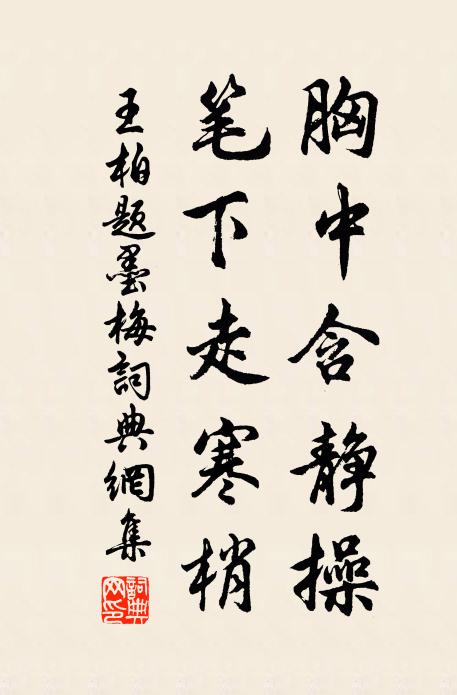 胸中含静操
笔下走寒梢
王柏题墨梅詞典網集
詞典网印